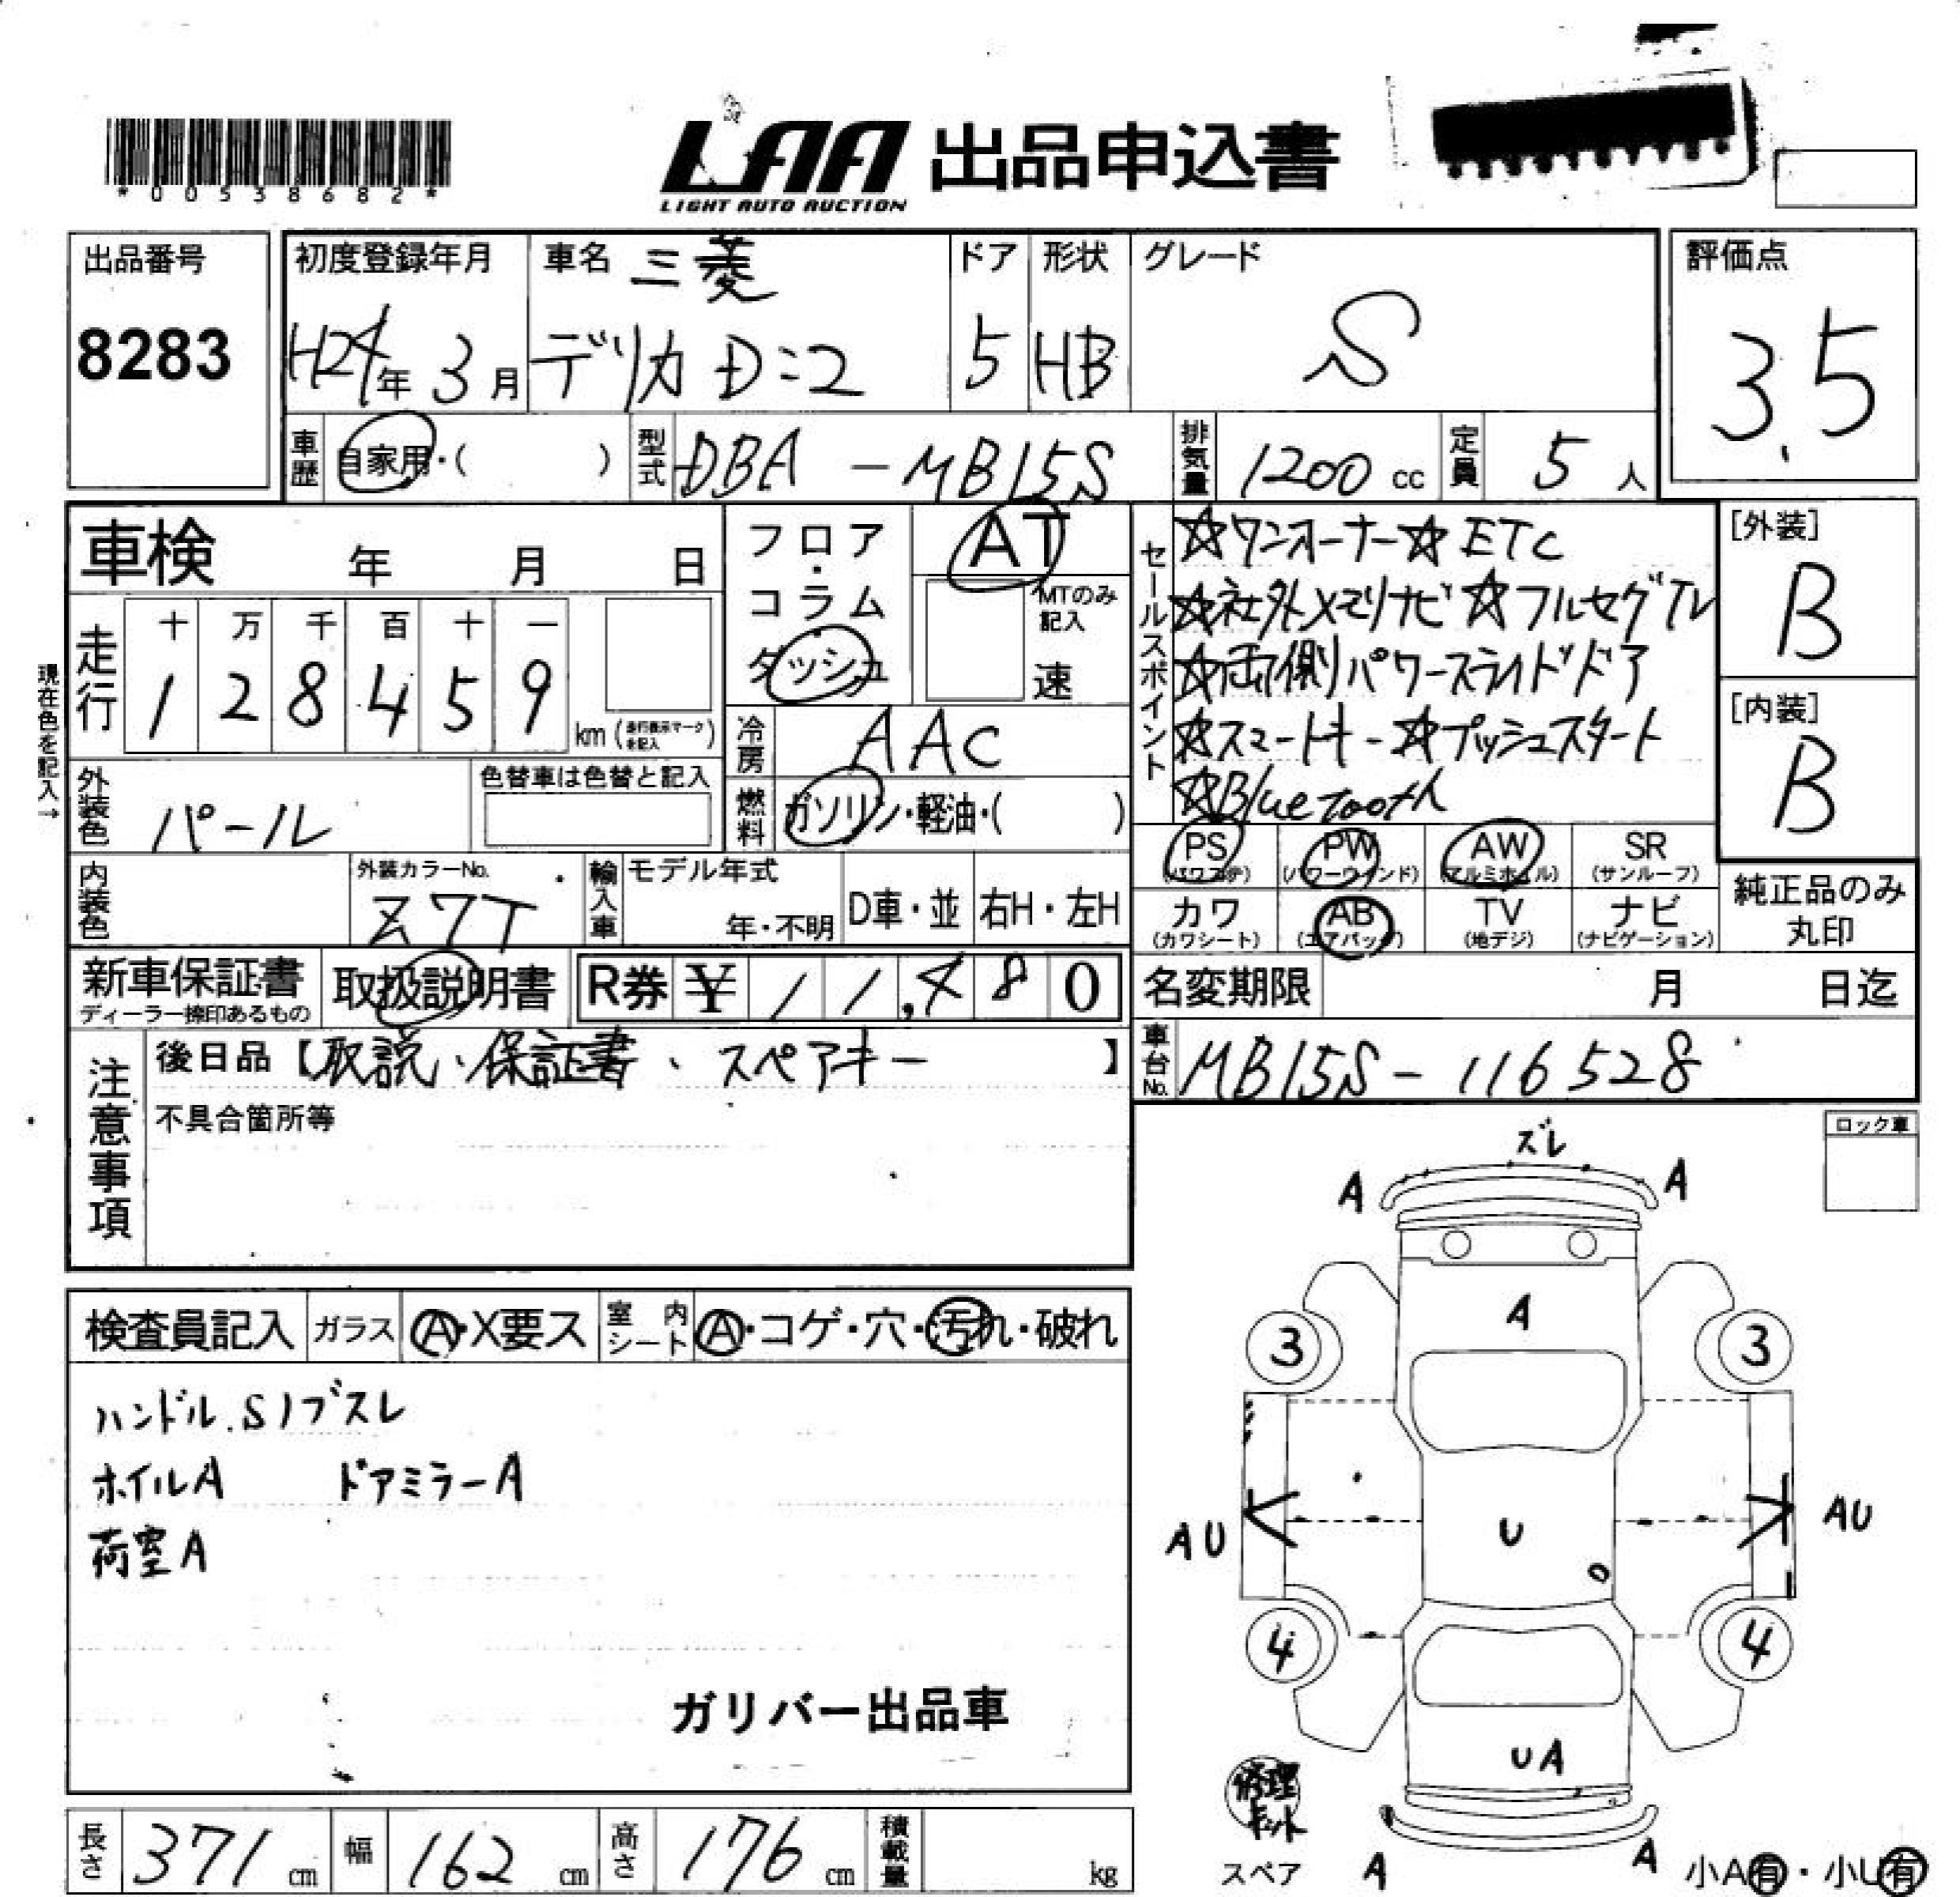 *00538682*
LAA 出品申込書
LIGHT AUTO AUCTION
出品番号
8283
初度登録年月
H24年 3月
車名 三菱
デリカ D:2
ドア
5
形状
HB
グレード
S
評価点
3.5
車歴 自家用・( )
型式 DBA-MB15S
排気量 1200 cc
定員 5 人
車検 年 月 日
フロア・コラム・ダッシュ
AT
MTのみ記入
速
セールスポイント
☆ワンオーナー☆ETC
☆社外メモリナビ☆フルセグTV
☆両側パワースライドドア
☆スマートキー☆プッシュスタート
☆Bluetooth
[外装]
B
[内装]
B
現在色を記入→
走行
十 万 千 百 十 一
1 2 8 4 5 9
km(走行表示マークを記入)
冷房 AAC
燃料 ガソリン・軽油・( )
外装色 パール
色替車は色替と記入
PS (パワステ)
PW (パワーウインド)
AW (アルミホイル)
SR (サンルーフ)
カワ (カワシート)
AB (エアバッグ)
TV (地デジ)
ナビ (ナビゲーション)
純正品のみ
丸印
内装色
外装カラーNo.
Z7T
輸入車
モデル年式
年・不明
D車・並
右H・左H
新車保証書
ディーラー捺印あるもの
取扱説明書
R券 ¥ 11,480
名変期限 月 日迄
車台No. MB15S-116528
注意事項
後日品【取説、保証書、スペアキー】
不具合箇所等
ロック車
ズレ
A A
A
3 3
AU U AU
4 4
UA
修理キット
スペア
A A
小A有・小U有
検査員記入
ガラス A・X要ス
室内シート A・コゲ・穴・汚れ・破れ
ハンドル.Sノブスレ
ホイルA ドアミラーA
荷室A
ガリバー出品車
長さ 371 cm
幅 162 cm
高さ 176 cm
積載量 kg